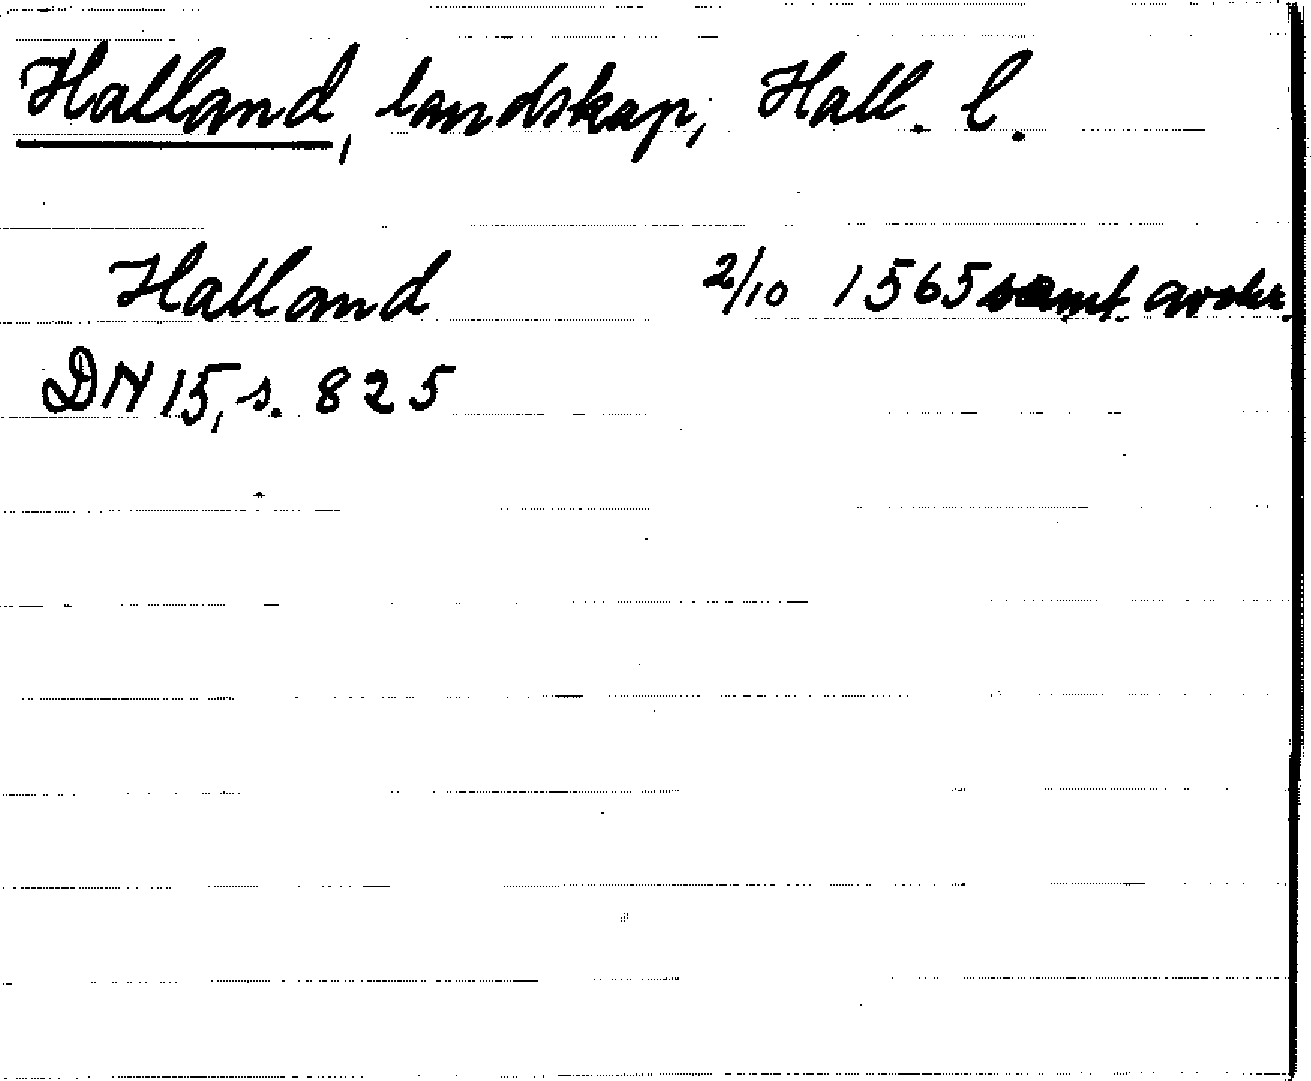 Halland, landskap, Hall. l.
Halland 2/10 1565 samt. avskr.
DN 15, s. 825